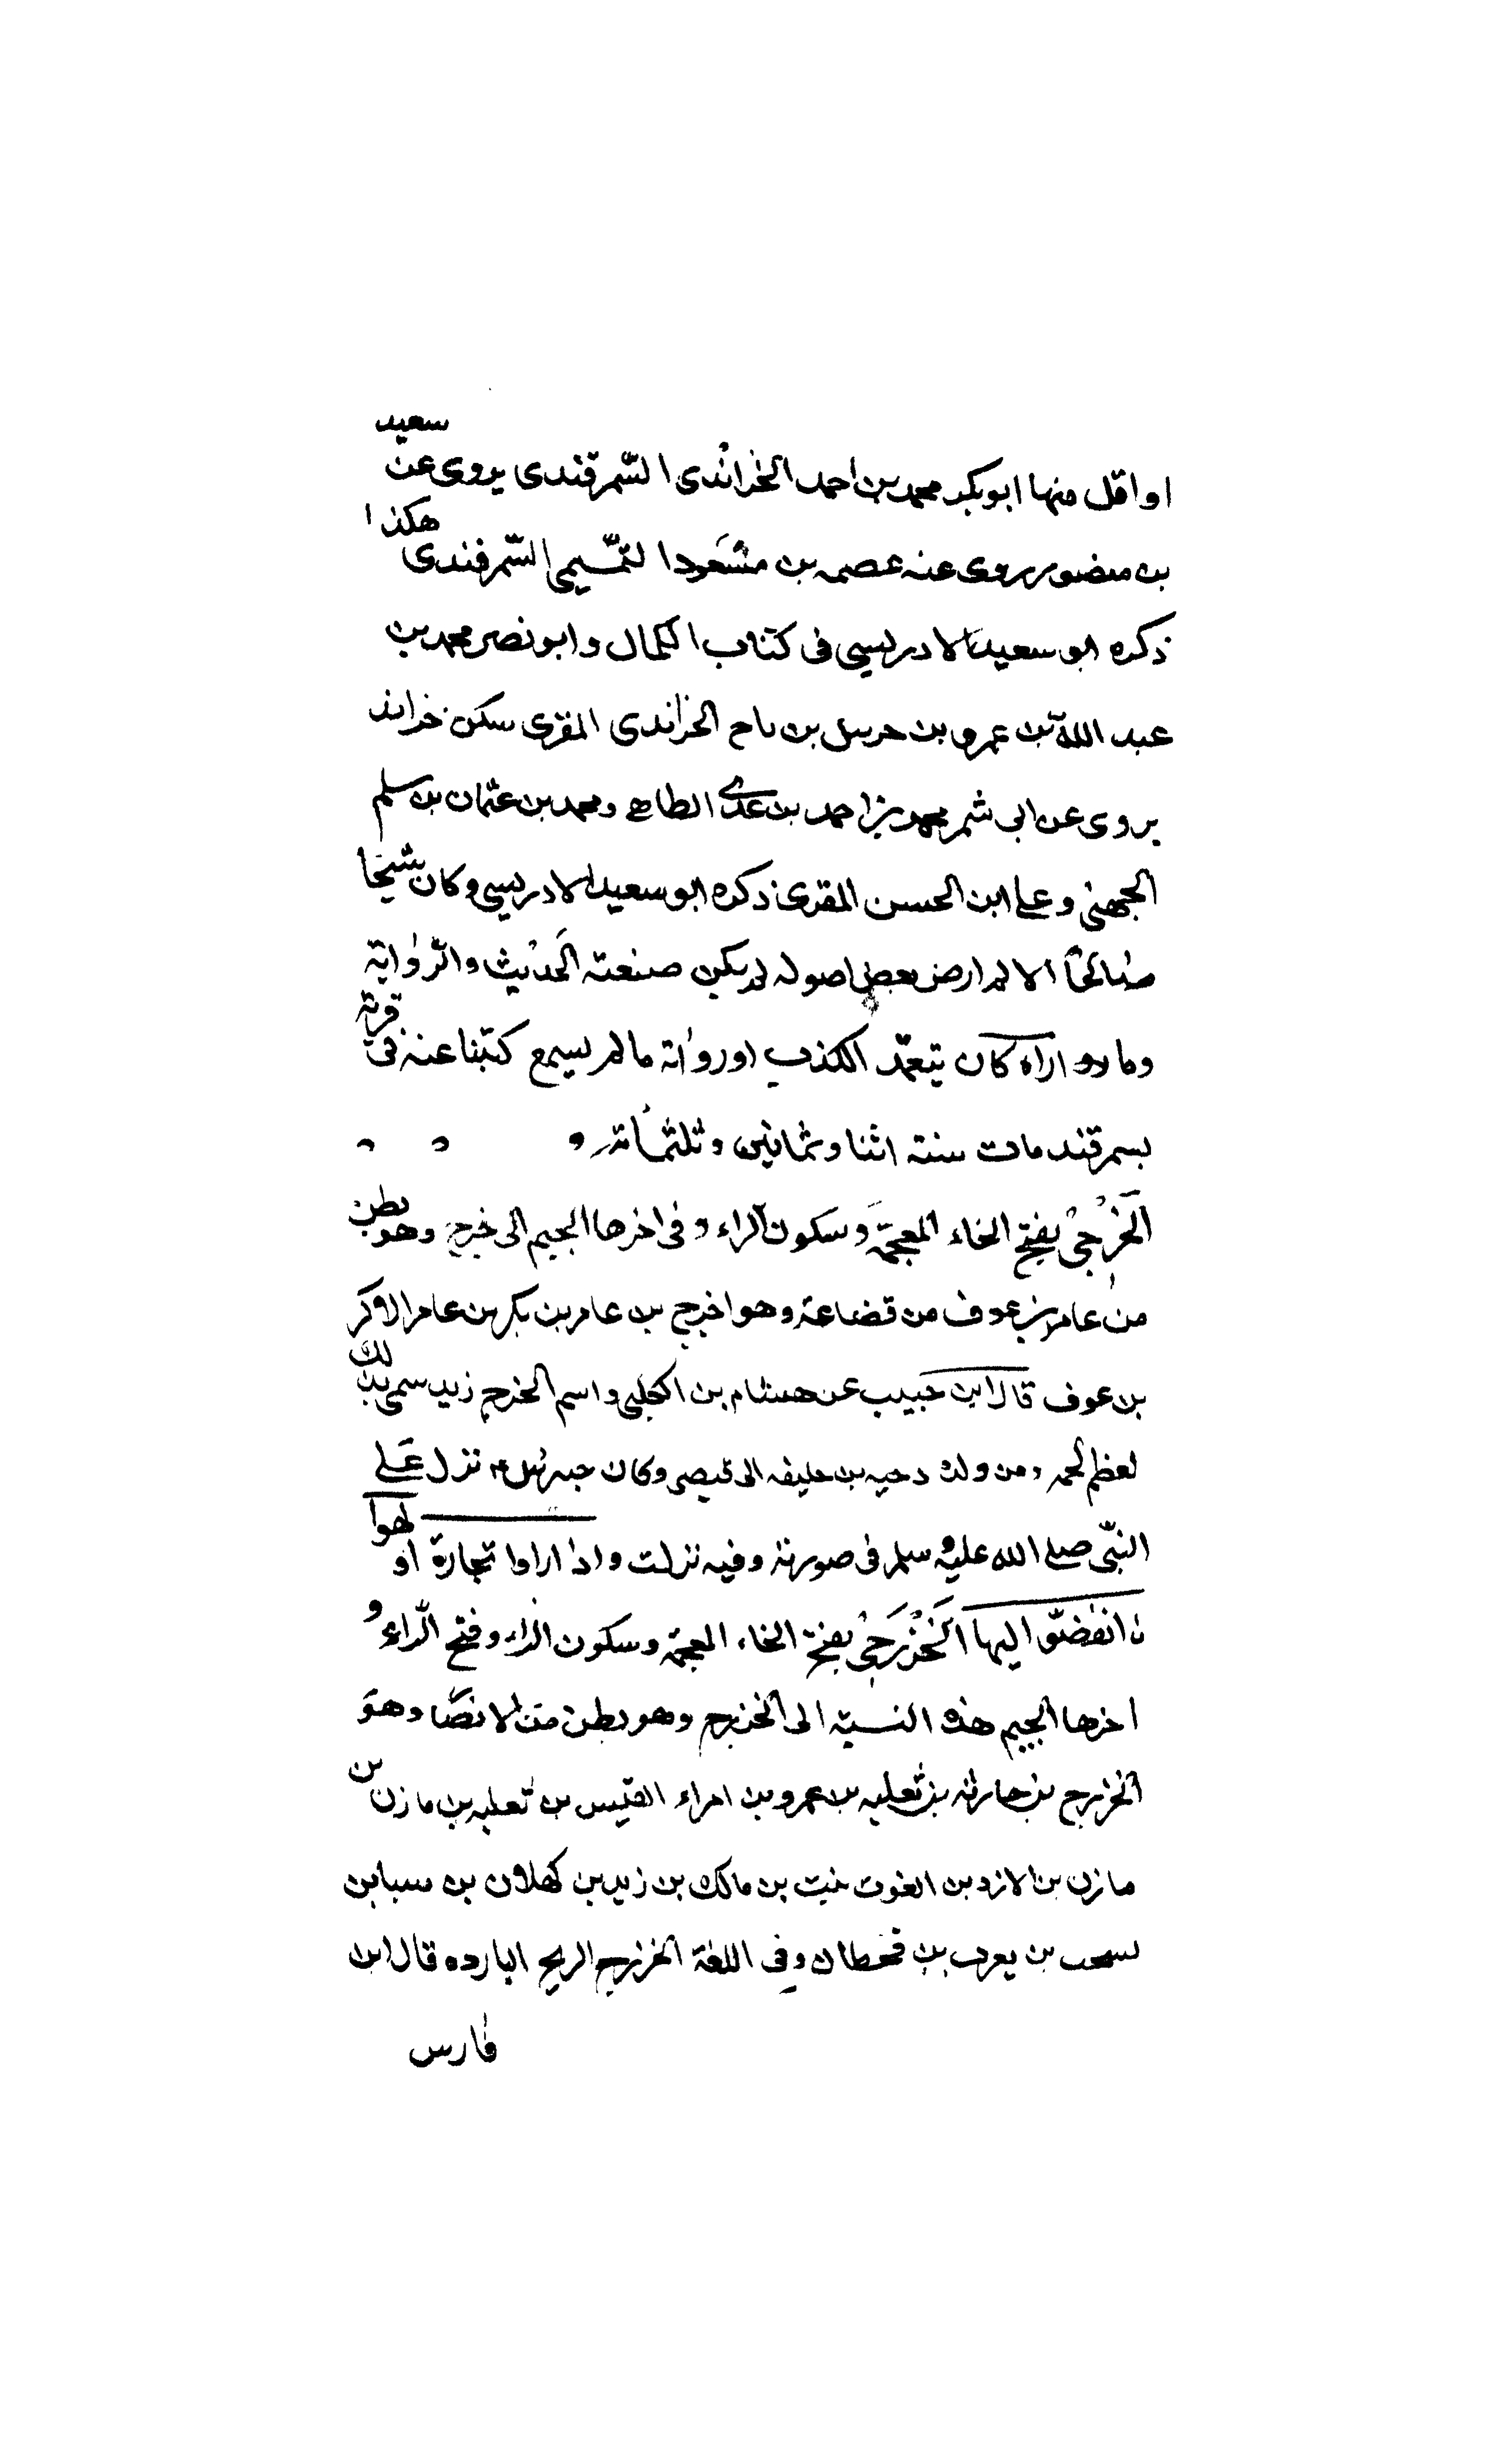 او اقل منها ابو بكر محمد بن احمد الخزاندى السمرقندى يروى عن سعيد
بن منصور روى عنه عصمه بن مسعود التميمى السمرقندى هكذا
ذكره ابو سعيد الادريسى فى كتاب الكمال وابو نصر محمد بن
عبد الله بن عمرو بن حرسل بن ناح الخزاندى المقرى سكن خزاند
يروى عن ابى شمر محمد بن احمد بن عدى الطاحى ومحمد بن عثمان بن سلم
الجهنى وعلى ابن الحسن المقرى ذكره ابو سعيد الادريسى وكان شيخا
صالحًا الا لم ارض بعض اصوله لم يكن صنعته الحديث والرواية
وما اراه كان يتعمّد الكذب او رواية ما لم يسمع كتبنا عنه فى قرية
بسمرقند مات سنة اثنا وثمانين وثلثمائة
الخَرْجىُّ بفتح الخاء المعجمة وسكون الراء وفى اخرها الجيم الى خرج وهو بطن
من عامر بن عوف من قضاعة وهو اخرج بن عامر بن بكر بن عامر الاكر
بن عوف قال ابن حبيب عن هشام بن الكلبى واسم الخزج زيد سمى بذلك
لعظم لحمه ومن ولده دحيه بن خليفه الى قيصر وكان جبرئيل نزل على
النبّى صلى الله عليه وسلم فى صورته وفيه نزلت واذا اراوا تجارة او لهوا
ن انفضوّا اليها الخَزْرَجىُّ بفتح الخاء المعجمة وسكون الزاء وفتح الرّاء و
اخرها الجيم هذه النسبة الى الخزرج وهو بطن من الانصا وهو
الخزرج بن حارثه بن ثعلبه بن عمرو بن امراء القيس بن ثعلبه بن مازن بن
مازن بن الازد بن الغوث نبت بن مالك بن زيد بن كهلان بن سبا بن
يسحب بن يعرب بن قحطان وفى اللغة الخزرج الريح البارده قال ابن
فارس